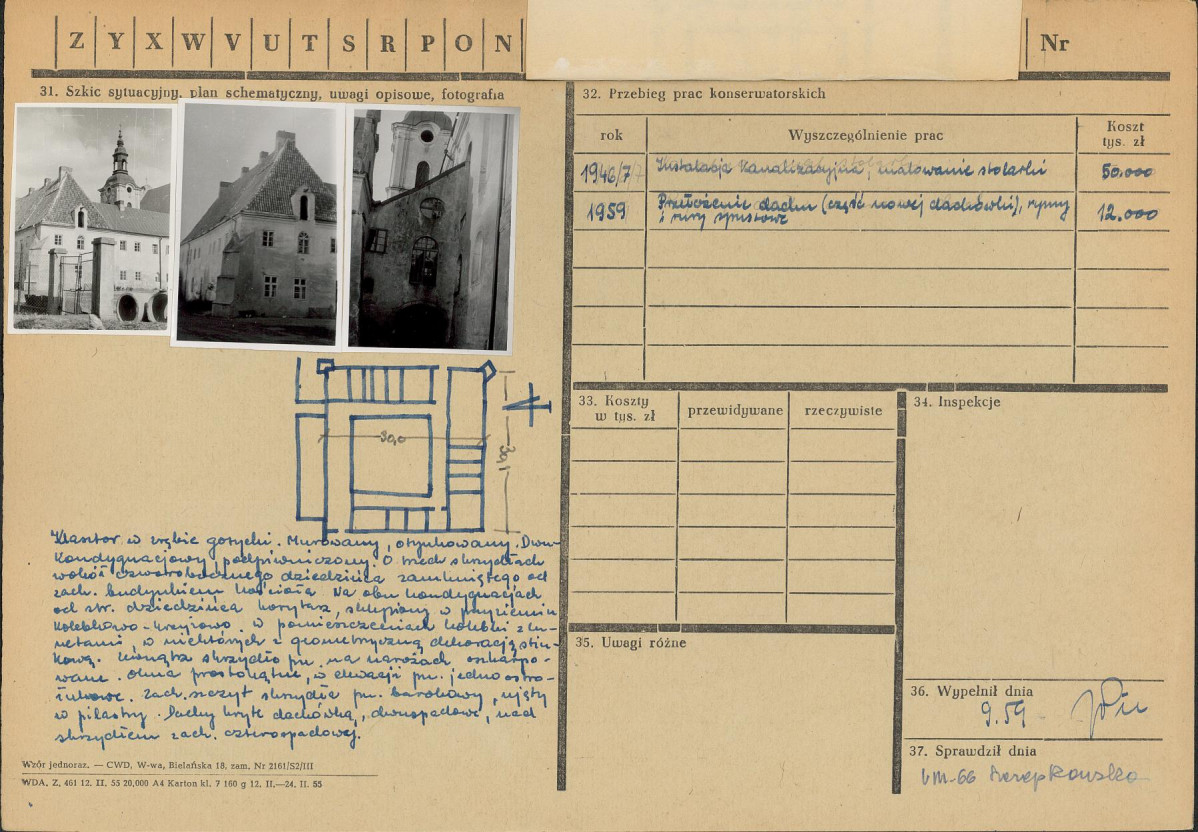 Z Y X W V U T S R P O N
Nr
31. Szkic sytuacyjny, plan schematyczny, uwagi opisowe, fotografia
30,0
30,1
Klasztor w zrębie gotycki. Murowany, otynkowany. Dwu-
kondygnacjowy, podpiwniczony. O trzech skrzydłach
wokół czworobocznego dziedzińca zamkniętego od
zach. budynkiem kościoła. Na obu kondygnacjach
od str. dziedzińca korytarz, sklepiony w przyziemiu
kolebkowo-krzyżowo. W pomieszczeniach kolebki z lu-
netami, w niektórych z geometryczną dekoracją stiu-
kową. Zewnątrz skrzydło pn. na narożach oskarpo-
wane. Okna prostokątne, w elewacji pn. jedno ostro-
łukowe. Zach. szczyt skrzydła pn. barokowy, ujęty
w pilastry. Dachy kryte dachówką, dwuspadowe, nad
skrzydłem zach. czterospadowy.
Wzór jednoraz. — CWD, W-wa, Bielańska 18, zam. Nr 2161/S2/III
WDA. Z. 461 12. II. 55 20,000 A4 Karton kl. 7 160 g 12. II.—24. II. 55
32. Przebieg prac konserwatorskich
rok Wyszczególnienie prac Koszt tys. zł
1946/7 Instalacja kanalizacyjna, malowanie stolarki 50.000
1959 Przełożenie dachu (część nowej dachówki), rynny
i rury spustowe 12.000
33. Koszty w tys. zł przewidywane rzeczywiste
34. Inspekcje
35. Uwagi różne
36. Wypełnił dnia
9.59
37. Sprawdził dnia